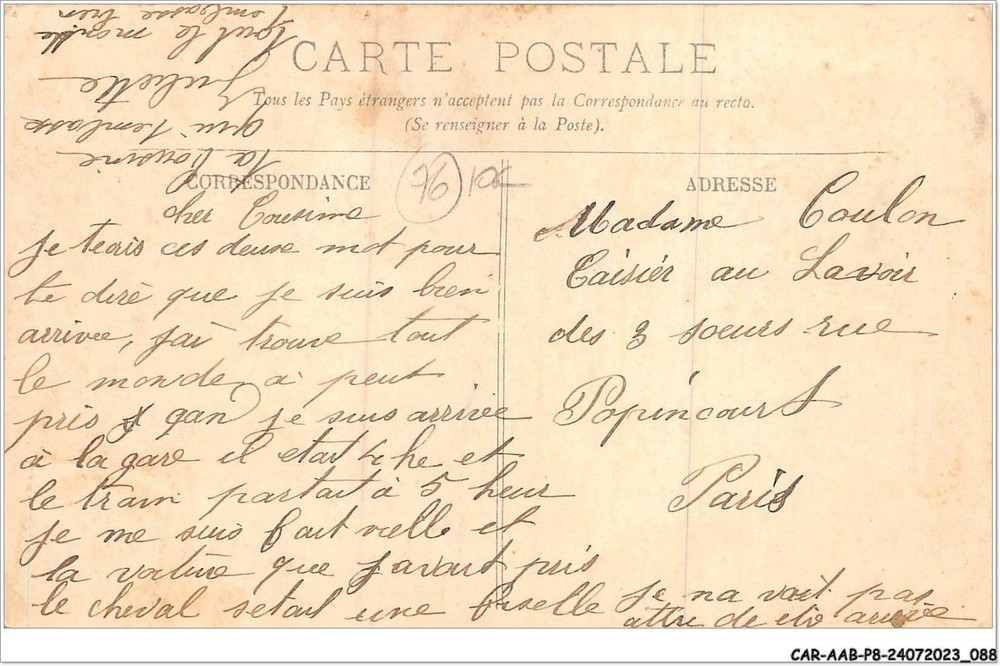 CARTE POSTALE
Tous les Pays étrangers n'acceptent pas la Correspondance au recto.
(Se renseigner à la Poste).
CORRESPONDANCE
76 10€
cher Cousine
Je tecris ces deuse mot pour
te dire que je suis bien
arrivee, jai trouve tout
le monde a peut
pris gan je suis arrivée
à la gare il etait 4 he et
le train partait à 5 heur
je me suis fait vielle et
la voiture que javait pris
le cheval setait une
je navait pas
attre de etre arrivée
ta Cousine
qui tembasse
Juliette
tout le monde
embasse bien
ADRESSE
Madame Coulon
Caisier au Lavoir
des 3 soeurs rue
Popincourt
Paris
CAR-AAB-P8-24072023_088